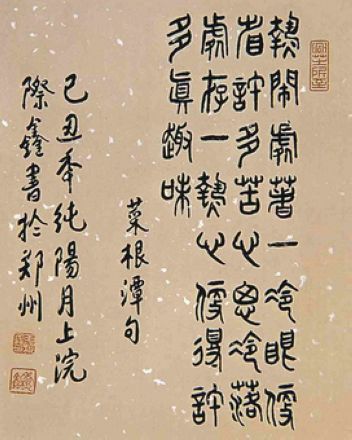 熱鬧處著一冷眼便
省許多苦心思冷落
處存一熱心便得許
多眞趣味
菜根潭句
己丑年純陽月上浣
際鑫書於郑州